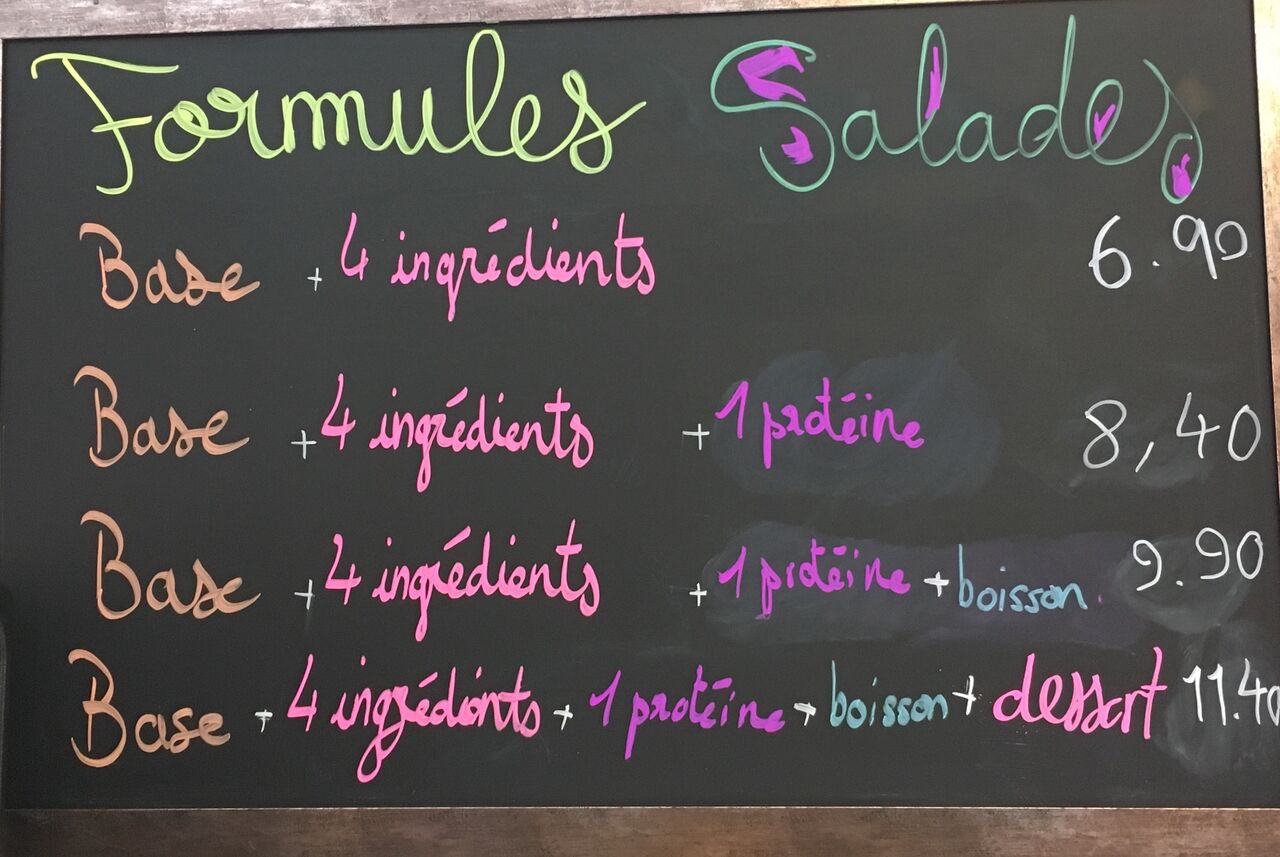 Formules Salades
Base + 4 ingrédients 6.90
Base + 4 ingrédients + 1 protéine 8,40
Base + 4 ingrédients + 1 protéine + boisson 9.90
Base + 4 ingrédients + 1 protéine + boisson + dessert 11.40